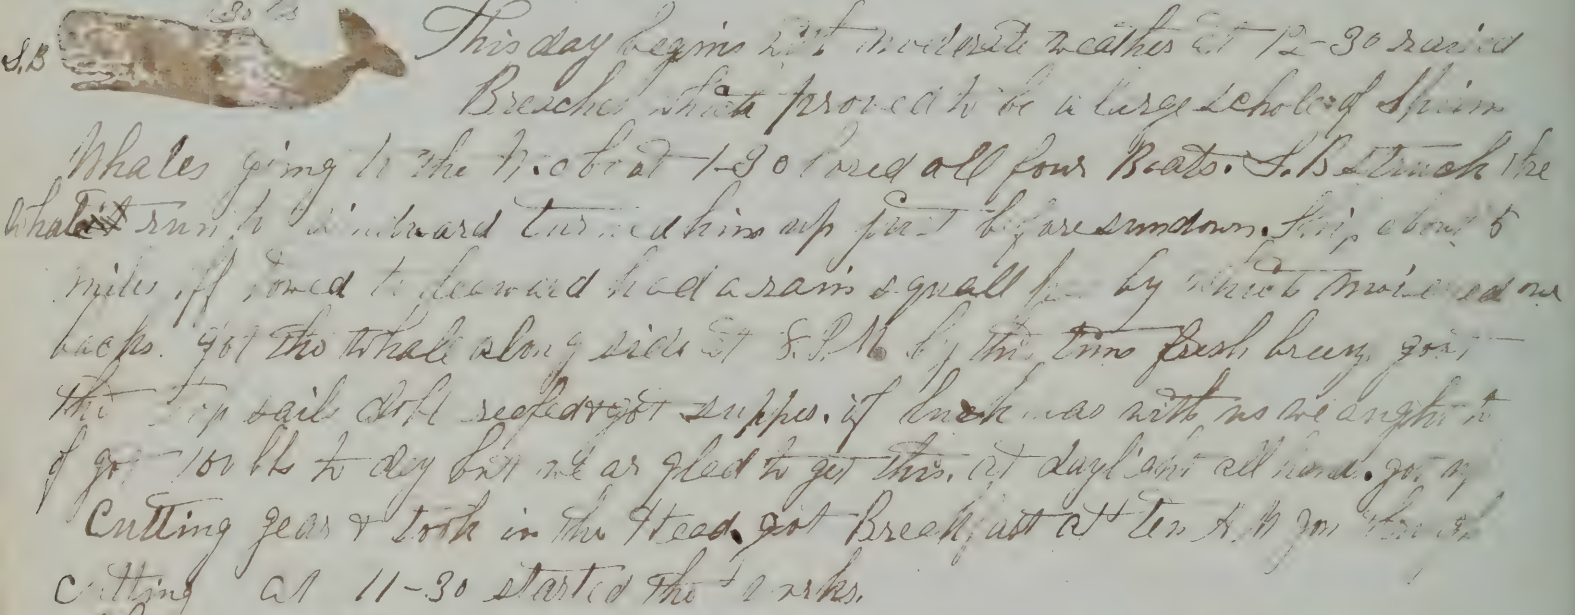 S.B This day begins with moderate weather at 12-30 raised
Breaches which proved to be a large schole of Sperm
Whales going to the at 1-30 lored all four Boats. S.B struck the
whale run to windward turned him up just before sundown. Ship about 5
miles off towed to leaward had a rain squall by which our
backs. got the whale along side at 8. P.M. by this time fresh breeze got
the top sails doble reefed & got supper. if luck was with us we ought to
of got 100 bls to day but we ar glad to get this. at daylight all hands. got
Cutting gear & took in the Head. got Breakfast at ten A.M got through
cutting at 11-30 started the works.